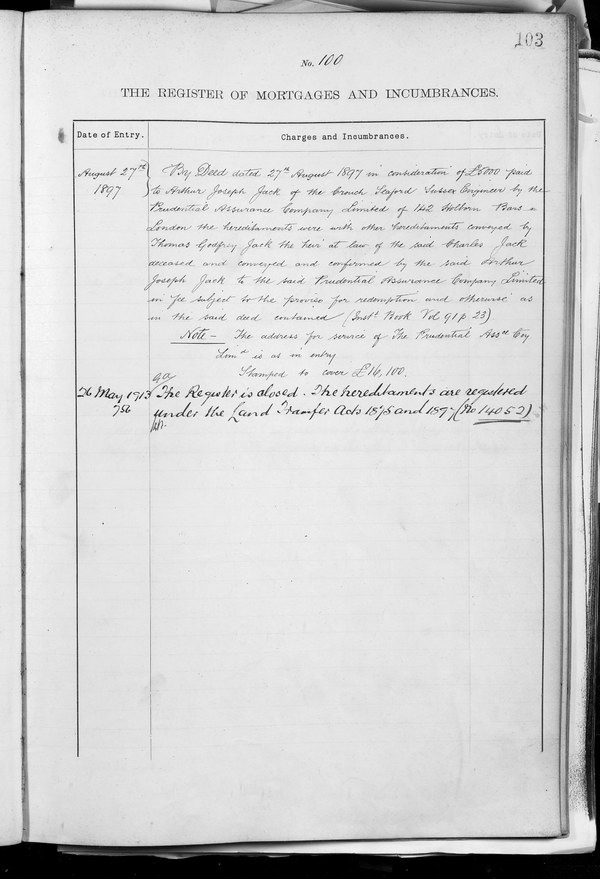 103
No. 100
THE REGISTER OF MORTGAGES AND INCUMBRANCES.
Date of Entry. Charges and Incumbrances.
August 27th 1897
By Deed dated 27th August 1897 in consideration of £5000 paid
to Arthur Joseph Jack of the Crouch Seaford Sussex Engineer by the
Prudential Assurance Company Limited of 142 Holborn Bars
London the hereditaments were with other hereditaments conveyed by
Thomas Godfrey Jack the heir at law of the said Charles Jack
deceased and conveyed and confirmed by the said Arthur
Joseph Jack to the said Prudential Assurance Company Limited
in fee subject to the proviso for redemption and otherwise as
in the said deed contained (Inst. Book Vol 91 p 23)
Note - The address for service of The Prudential Assce Coy
Limd is as in entry
Stamped to cover £16,100.
26 May 1913 The Register is closed. The hereditaments are registered
756 under the Land Transfer Acts 1875 and 1897 (No 14052)